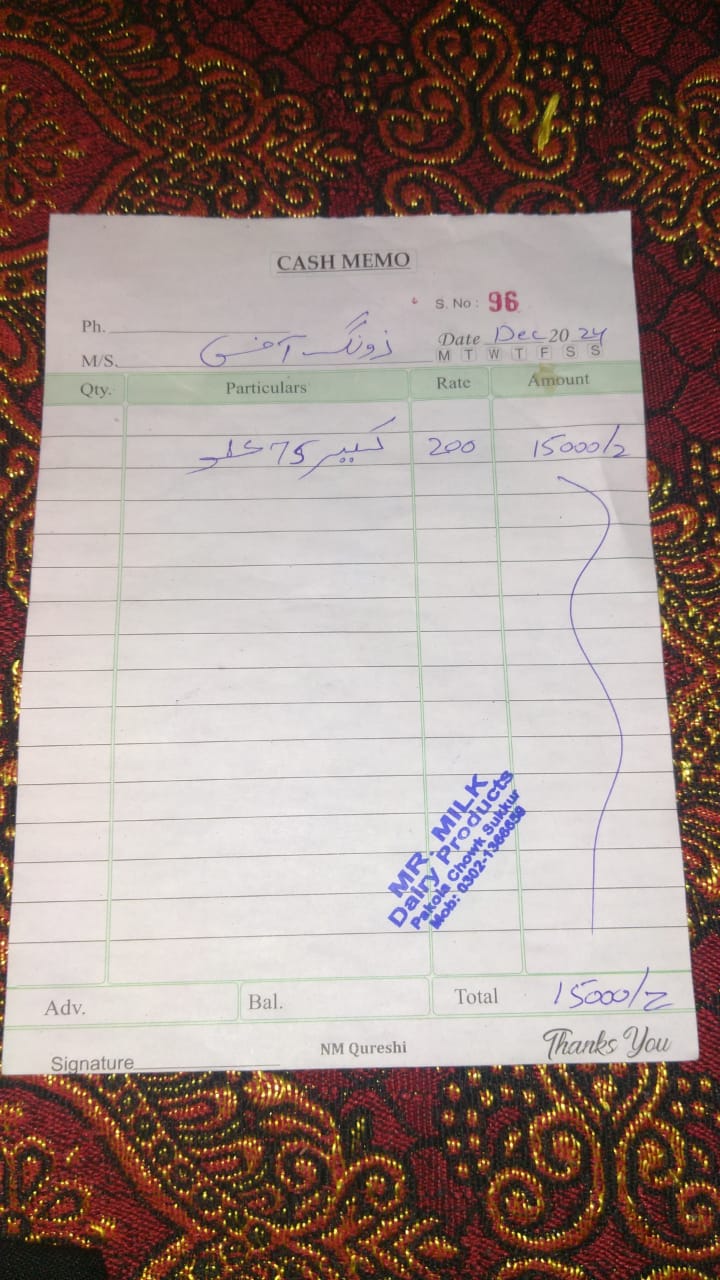 CASH MEMO
S. No : 96
Ph.
Date Dec 20 24
M/S. زونگ آفس
M T W T F S S
Qty. Particulars Rate Amount
75 کلو 200 15000/=
MR. MILK
Dairy Products
Pakola Chowk Sukkur
Mob: 0302-1366656
Adv. Bal. Total 15000/=
Signature NM Qureshi Thanks You